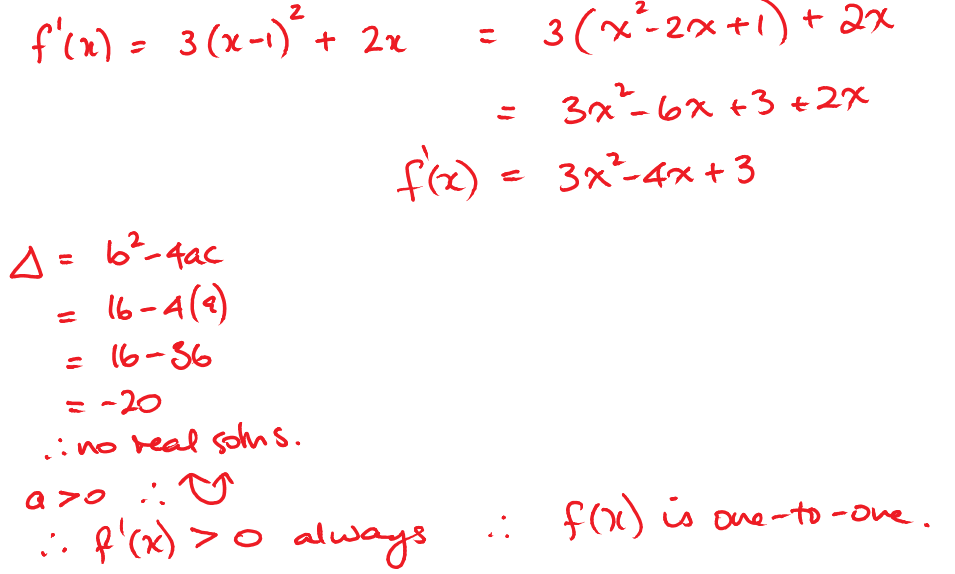 f'(x) = 3(x-1)² + 2x = 3(x²-2x+1) + 2x
= 3x²-6x+3+2x
f'(x) = 3x²-4x+3
Δ = b²-4ac
= 16-4(9)
= 16-36
= -20
∴ no real solns.
a>0 ∴
∴ f'(x) > 0 always ∴ f(x) is one-to-one.